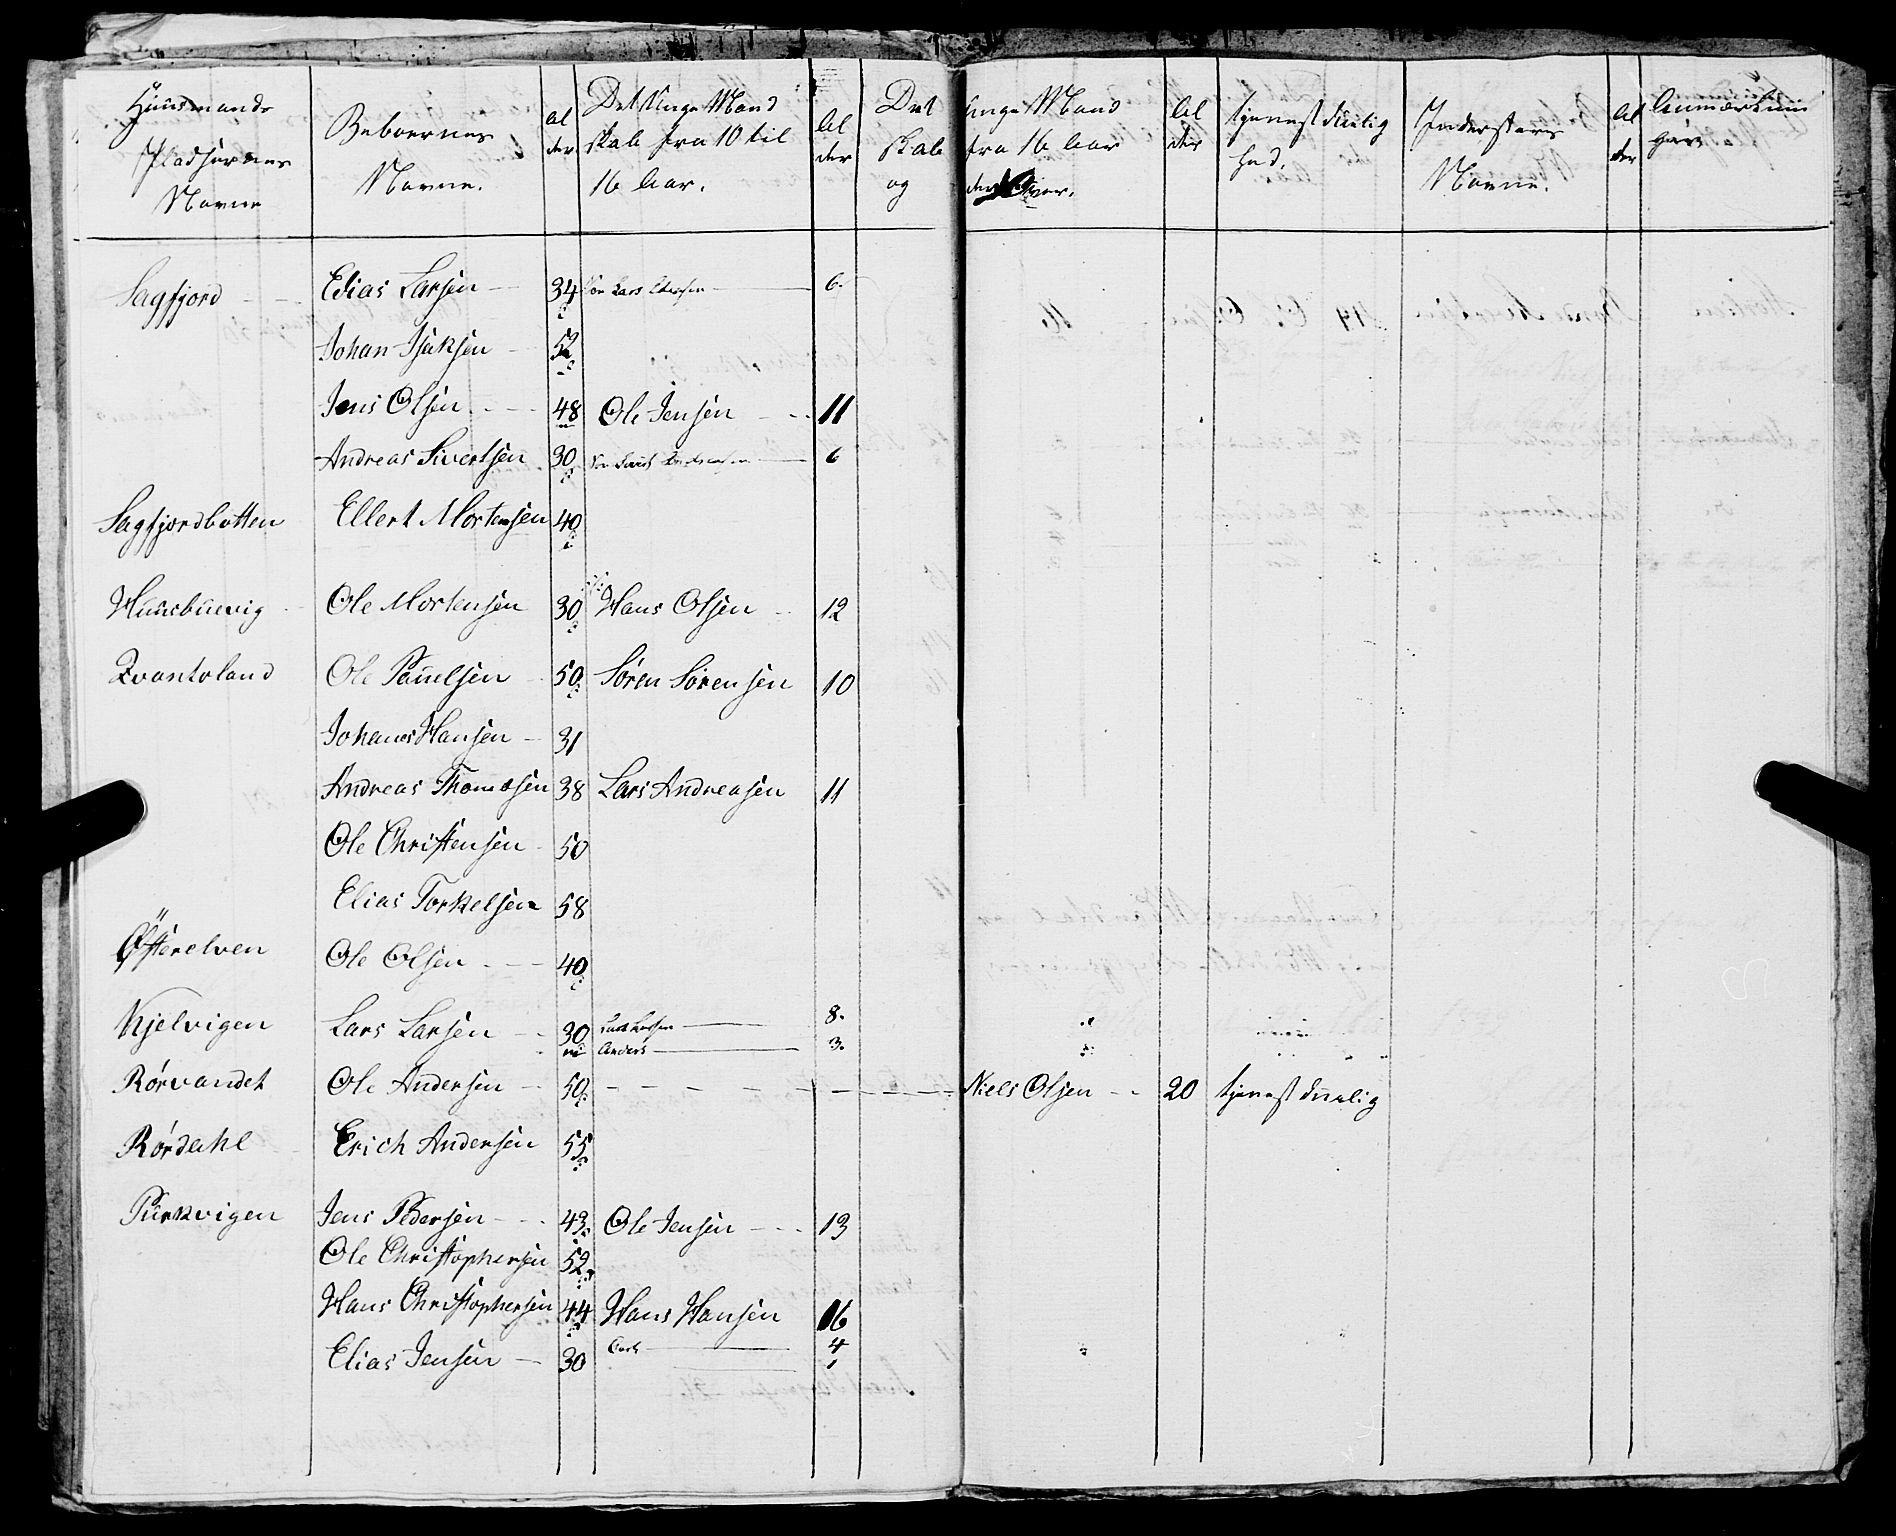 Huusmands Pladsernes Navne | Beboernes Navne. | Al der | Det Unge Mandskab fra 10 til 16 Aar. | Al der | Det unge Mandskab fra 16 Aar og der Over. | Al der | tjenestdüelighed. | Inderstens Navne. | Al der | Anmærkninger
Sagfjord | Elias Larsen | 34 | Søn Lars Eliassen | 6.
Johan Isaksen | 52
Jens Olsen | 48 | Ole Jensen | 11
Andreas Sivertsen | 30 | Søn Sivert Andreasen | 6
Sagfjordbotten | Ellert Mortensen | 40
Huusbuevig | Ole Mortensen | 30 | Hans Olsen | 12
Qvantoland | Ole Pauelsen | 50 | Sören Sörensen | 10
Johanes Hansen | 31
Andreas Thomasen | 38 | Lars Andreasen | 11
Ole Christensen | 50
Elias Torkelsen | 58
Österelven | Ole Olsen | 40
Kjelvigen | Lars Larsen | 30 | Lars Larsen | 8.
Anders | 3.
Rørvandet | Ole Andersen | 50 | Niels Olsen | 20 | tjenestdüelig
Rørdahl | Erich Andersen | 55
Purkvigen | Jens Pedersen | 43 | Ole Jensen | 13
Ole Christophersen | 52
Hans Christophersen | 44 | Hans Hansen | 16
Elias Jensen | 30 | 4
1